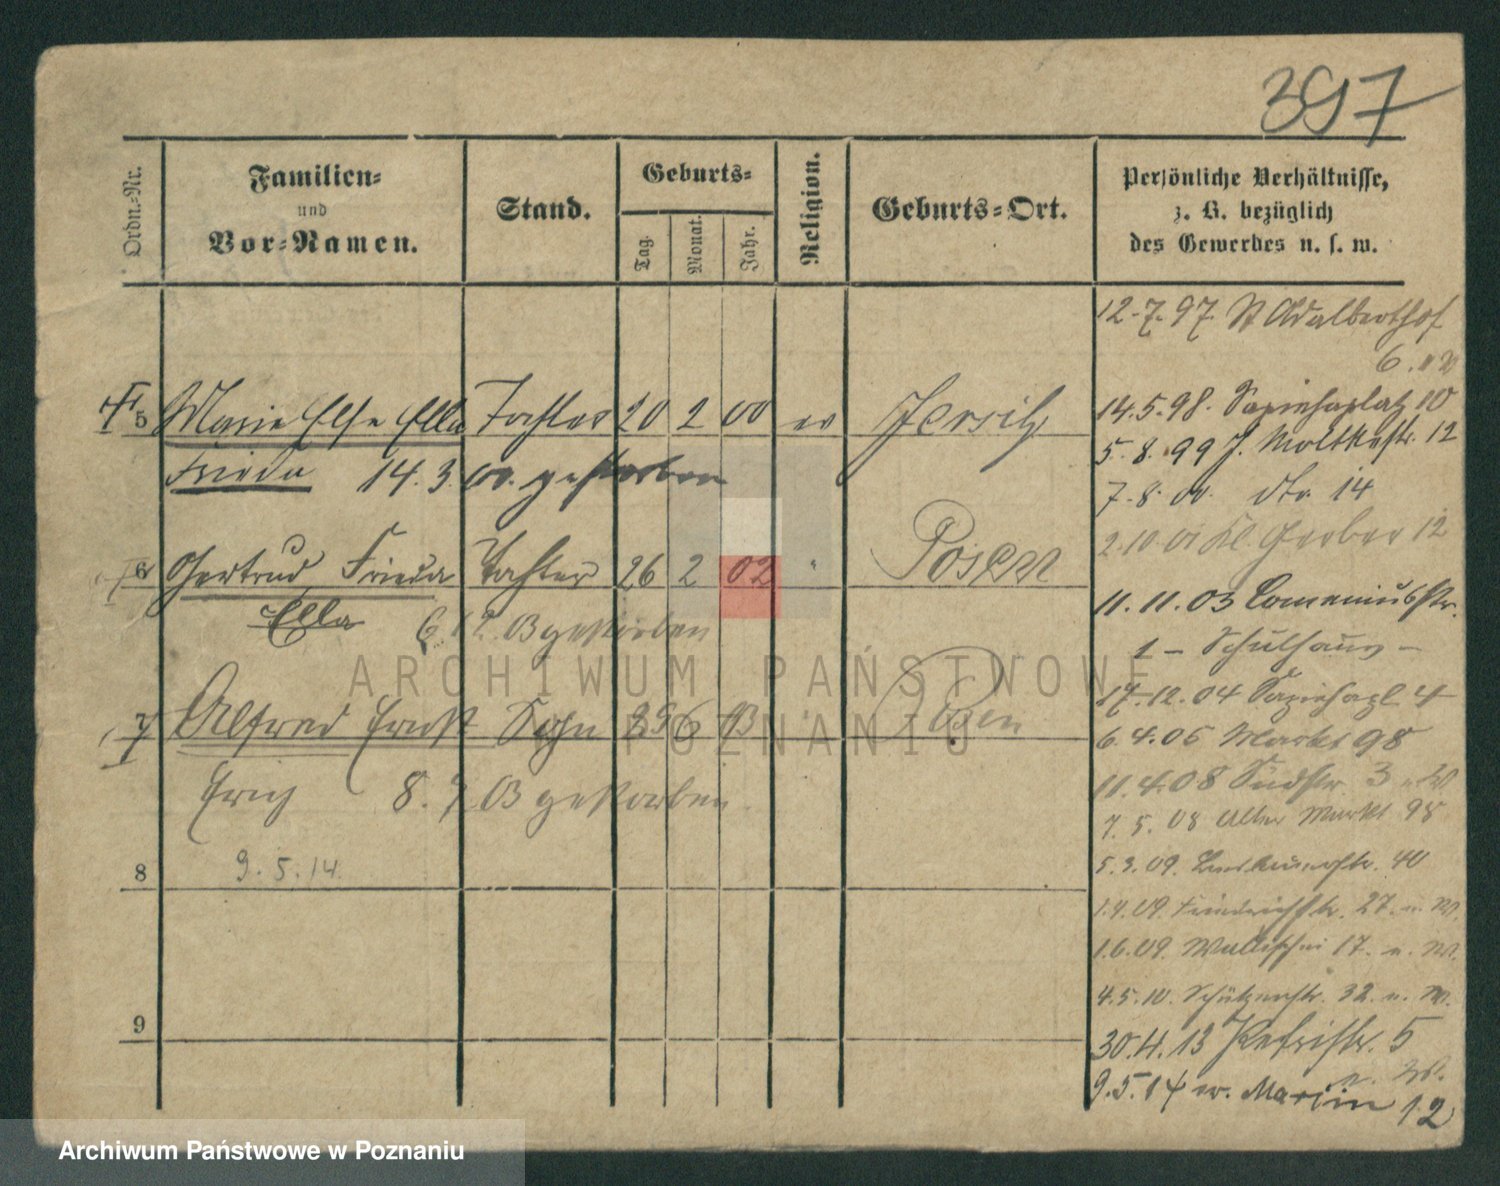 397
Ordn.-Nr.
Familien-
und
Vor-Namen.
Stand.
Geburts-
Tag.
Monat.
Jahr.
Religion.
Geburts-Ort.
Persönliche Verhältnisse,
z. B. bezüglich
des Gewerbes u. s. w.
12.7.97. St Adalberthof
6.
5 Marie Else Ella Tochter 20 2 00 ev Jersitz
Frieda 14.3.00. gestorben
14.5.98. Sapiehaplatz 10
5.8.99 J. Moltkestr. 12
7.8.00. dto. 14
2.10.01 Kl. Gerber 12
6 Gertrud Frieda Tochter 26 2 02 " Posen
Ella 6.12.03 gestorben
11.11.03 Comeniusstr.
1 - Schulhaus -
7 Alfred Ernst Sohn 25 6 03 Posen
Erich 8.7.03 gestorben
17.12.04 Sapiehapl 4
6.4.05 Markt 98
11.4.08 Südstr 3
7.5.08 Alter Markt 98
8 9.5.14.
5.3.09. 40
1.4.09. Friedrichstr. 27. u. W.
1.6.09. Wallischei 17. u. W.
4.5.10. Schützenstr. 32. u. W.
9
30.4.13 5
u. W.
9.5.14 w. Marin 12
ARCHIWUM PAŃSTWOWE
W POZNANIU
Archiwum Państwowe w Poznaniu